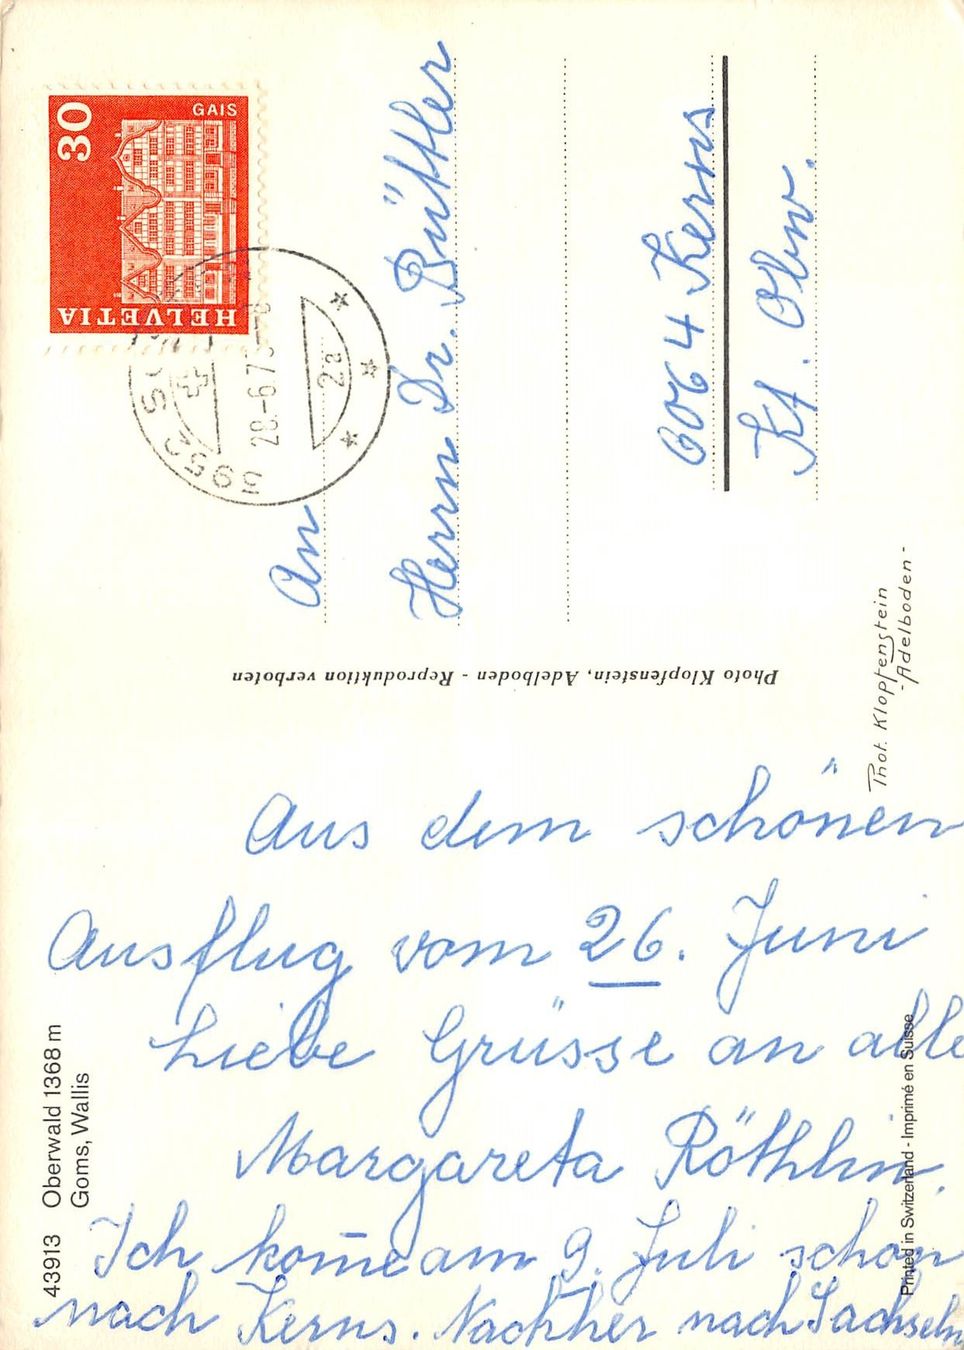 30
GAIS
HELVETIA
3952 SU
28-6.7
2a
An
Herrn Dr. Bütler
6064 Kerns
Kt. Obw.
Phot. Klopfenstein
-Adelboden-
Photo Klopfenstein, Adelboden - Reproduktion verboten
Aus dem schönen
Ausflug vom 26. Juni
Liebe Grüsse an alle
Margareta Röthlin.
Ich kom̄e am 9. Juli schon
nach Kerns. Nachher nach Sachseln
43913 Oberwald 1368 m
Goms, Wallis
Printed in Switzerland - Imprimé en Suisse